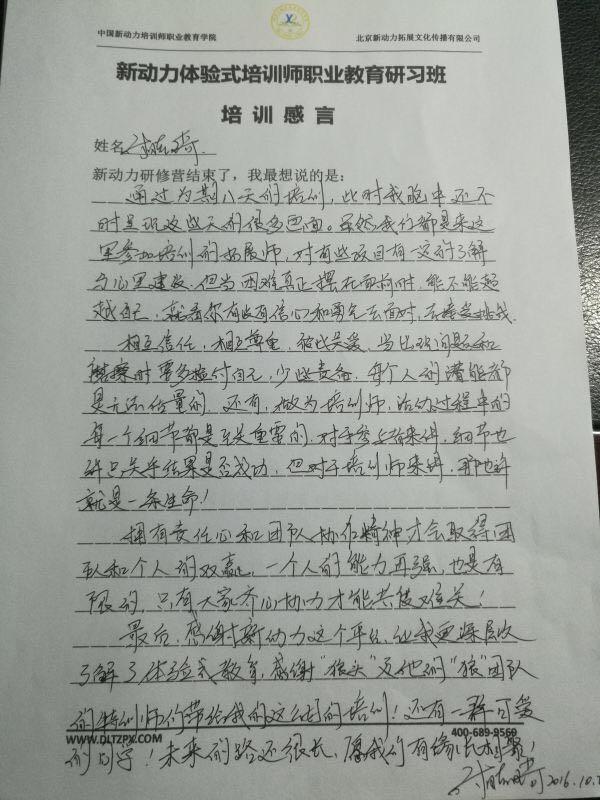 中国新动力培训师职业教育学院
北京新动力拓展文化传播有限公司
新动力体验式培训师职业教育研习班
培训感言
姓名
新动力研修营结束了，我最想说的是：
通过为期八天的培训，此时我脑中还不
时呈现这些天的很多画面。虽然我们都是来这
里参加培训的拓展师，对有些项目有一定的了解
与心里建设，但当困难真正摆在面前时，能不能超
越自己，就看你有没有信心和勇气去面对，去接受挑战。
相互信任，相互尊重，彼此关爱，当出现问题和
摩擦时要多检讨自己，少些责备，每个人的潜能都
是无法估量的，还有，做为培训师，活动过程中的
每一个细节都是至关重要的，对于参与者来讲，细节也
许只关乎结果是否成功，但对于培训师来讲，那也许
就是一条生命！
拥有责任心和团队协作精神才会取得团
队和个人的双赢，一个人的能力再强，也是有
限的，只有大家齐心协力才能共度难关！
最后，感谢新动力这个平台，让我更深层次
了解了体验式教育，感谢"狼头"及他们"狼"团队
的特训师们带给我的这么好的培训！还有一群可爱
WWW.DLTZPX.COM
400-689-9560
的同学！未来的路还很长，愿我们有缘再相聚！
2016.10.